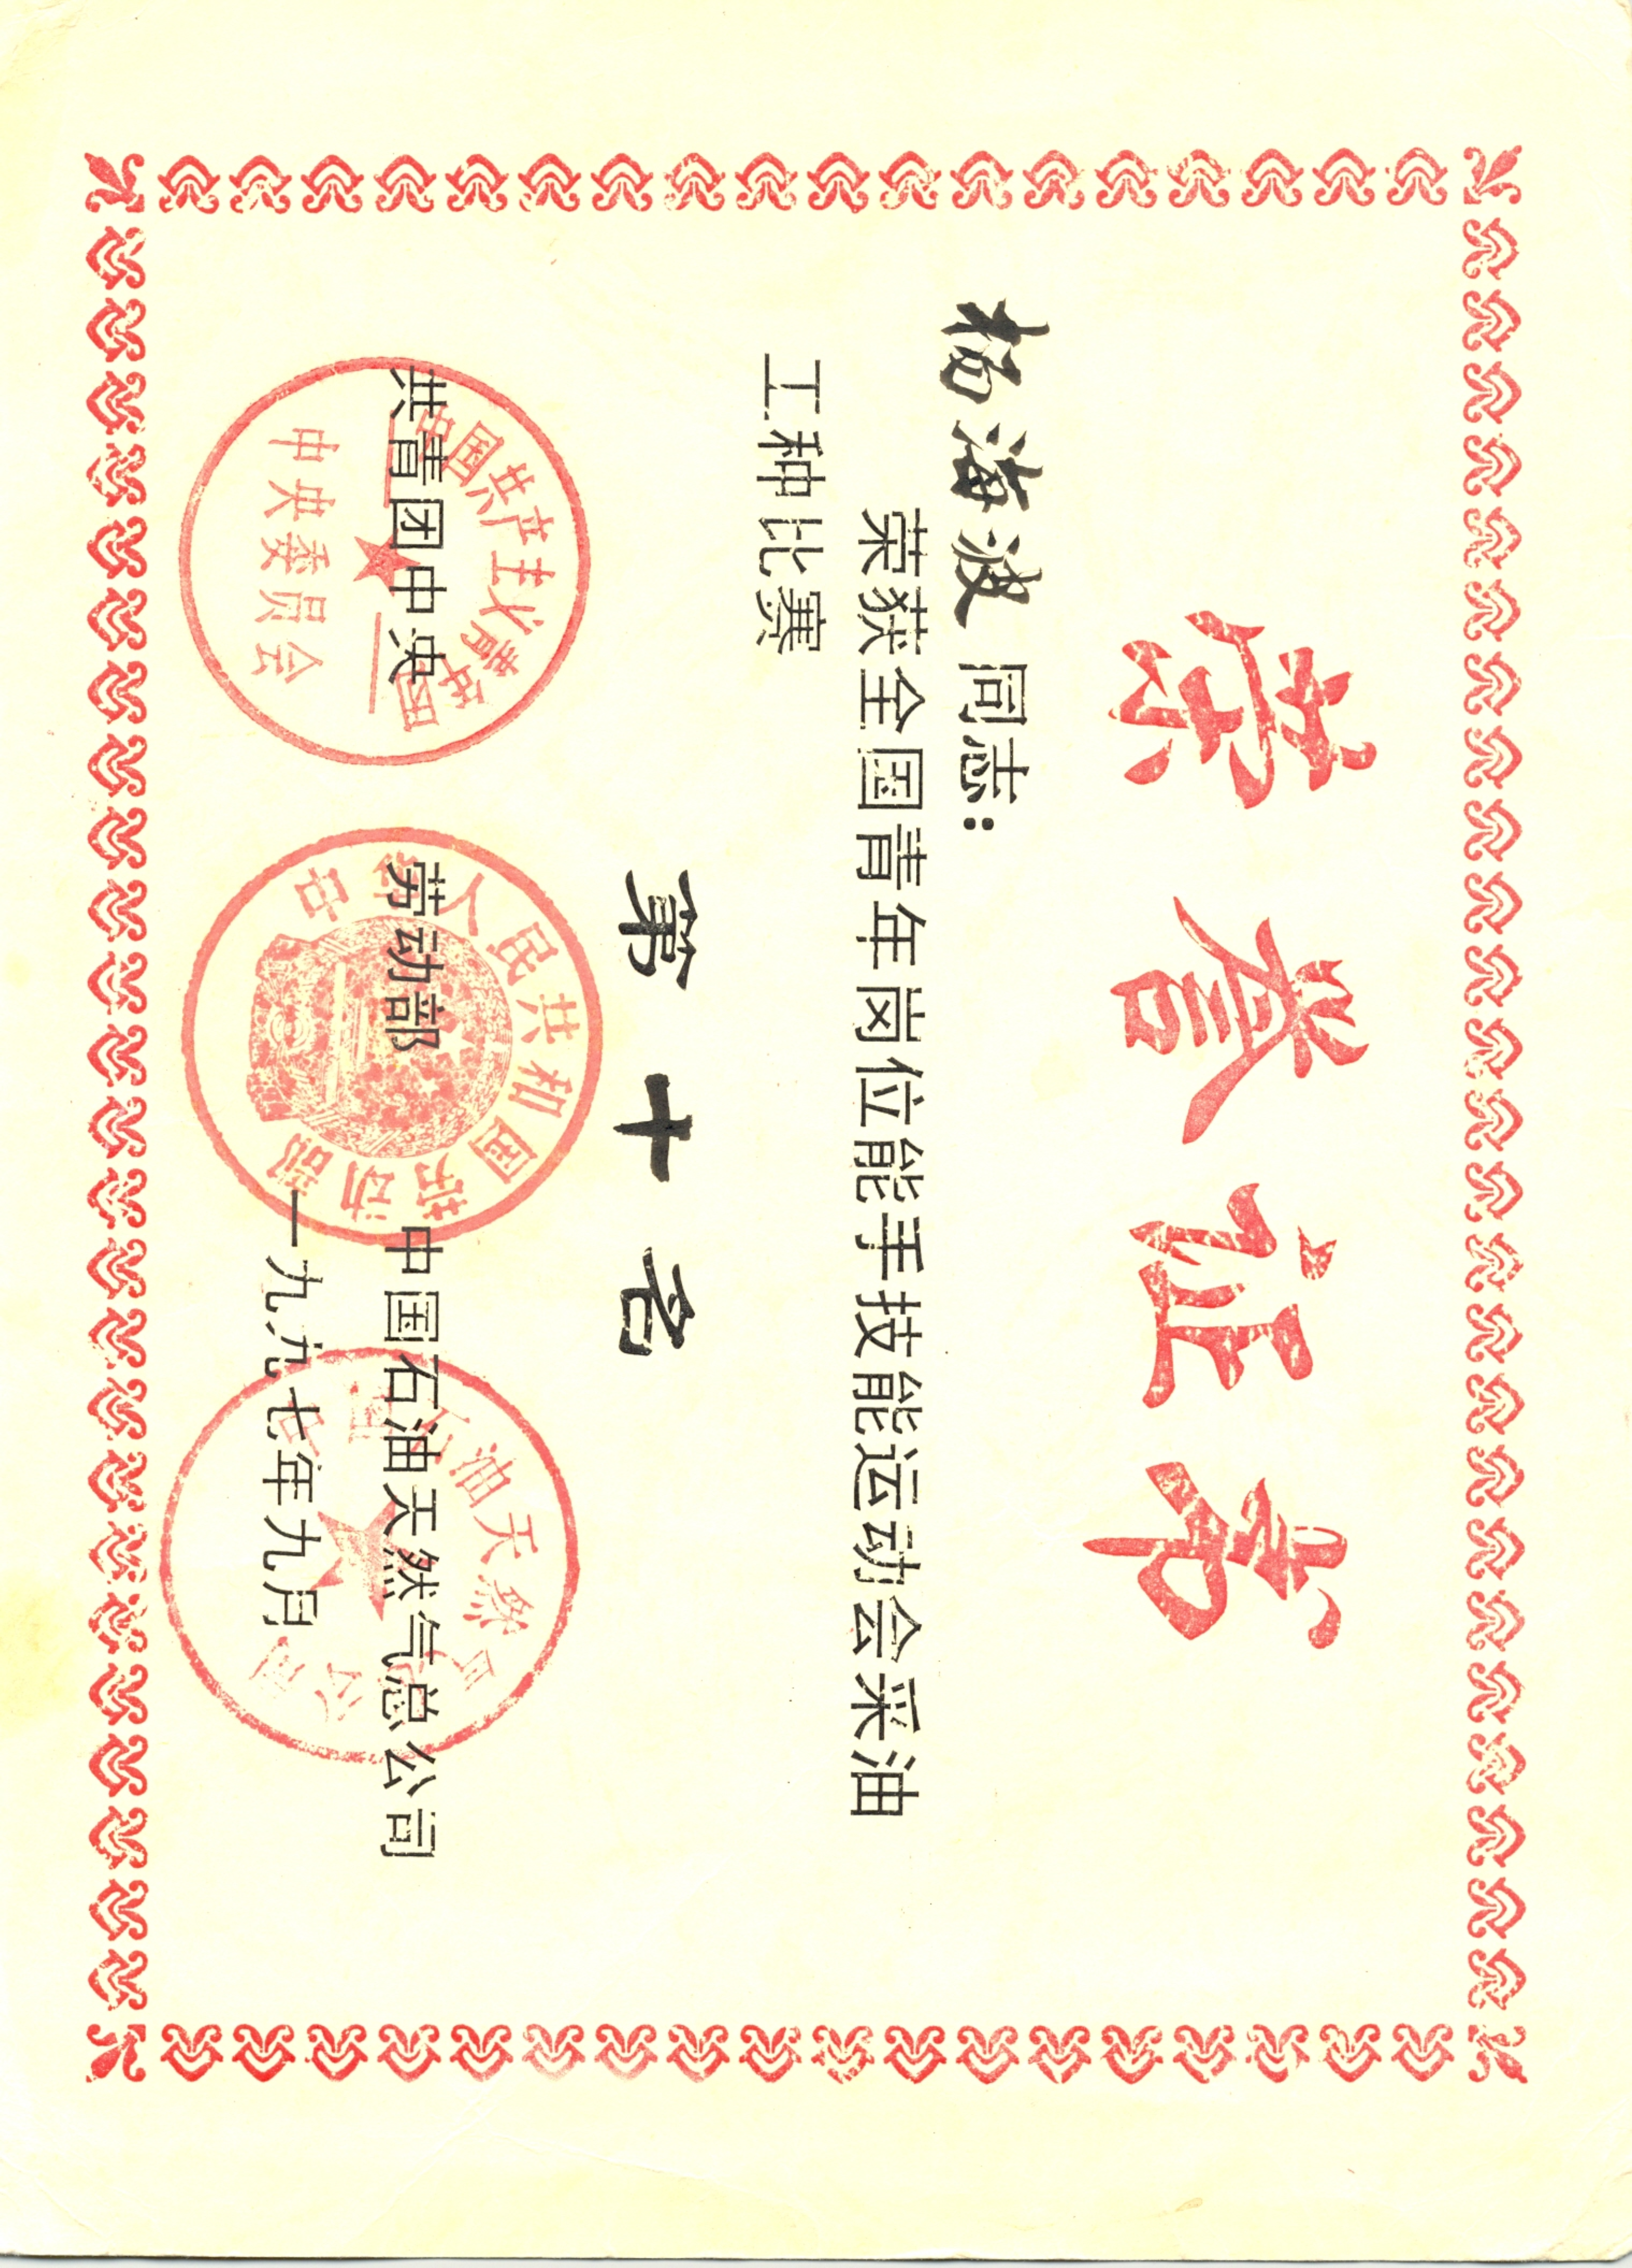 荣誉证书
杨海波 同志：
荣获全国青年岗位能手技能运动会采油
工种比赛
第十名
共青团中央 劳动部 中国石油天然气总公司
一九九七年九月
中国共产主义青年团
中央委员会
中华人民共和国劳动部
中国石油天然气总公司